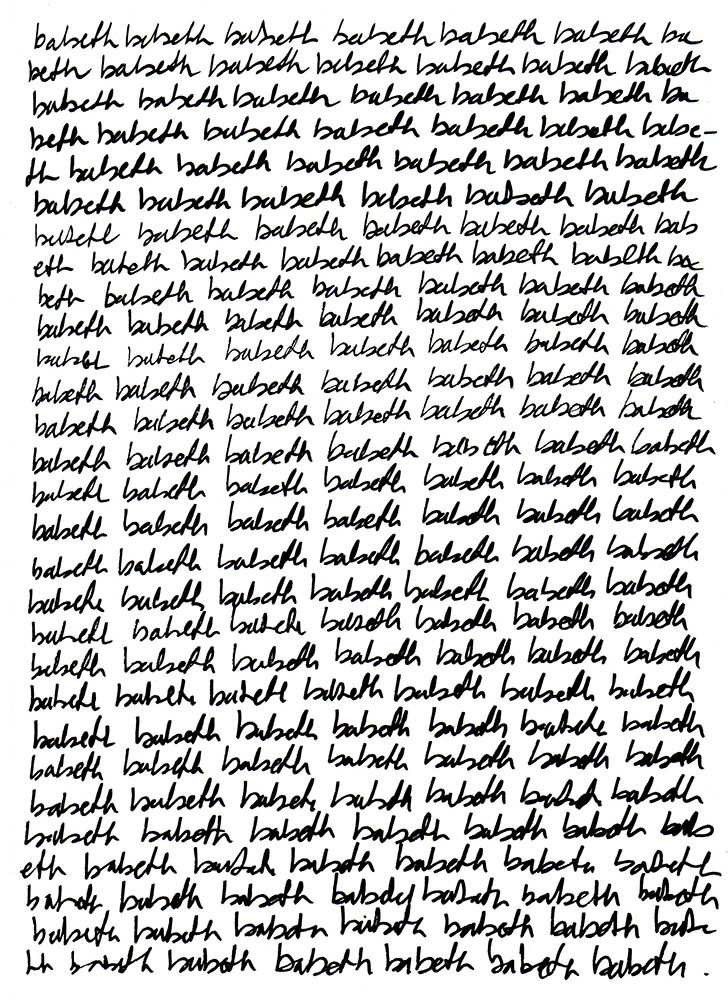 babeth babeth babeth babeth babeth babeth ba
beth babeth babeth babeth babeth babeth babeth
babeth babeth babeth babeth babeth babeth ba
beth babeth babeth babeth babeth babeth babe-
th babeth babeth babeth babeth babeth babeth
babeth babeth babeth babeth babeth babeth
babeth babeth babeth babeth babeth babeth bab
eth babeth babeth babeth babeth babeth babeth ba
beth babeth babeth babeth babeth babeth babeth
babeth babeth babeth babeth babeth babeth babeth
babeth babeth babeth babeth babeth babeth babeth
babeth babeth babeth babeth babeth babeth babeth
babeth babeth babeth babeth babeth babeth babeth
babeth babeth babeth babeth babeth babeth babeth
babeth babeth babeth babeth babeth babeth babeth
babeth babeth babeth babeth babeth babeth babeth
babeth babeth babeth babeth babeth babeth babeth
babeth babeth babeth babeth babeth babeth babeth
babeth babeth babeth babeth babeth babeth babeth
babeth babeth babeth babeth babeth babeth babeth
babeth babeth babeth babeth babeth babeth babeth
babeth babeth babeth babeth babeth babeth babeth
babeth babeth babeth babeth babeth babeth babeth
babeth babeth babeth babeth babeth babeth babeth
babeth babeth babeth babeth babeth babeth bab
eth babeth babeth babeth babeth babeth babeth
babeth babeth babeth babeth babeth babeth babeth
babeth babeth babeth babeth babeth babeth babe
th babeth babeth babeth babeth babeth babeth.